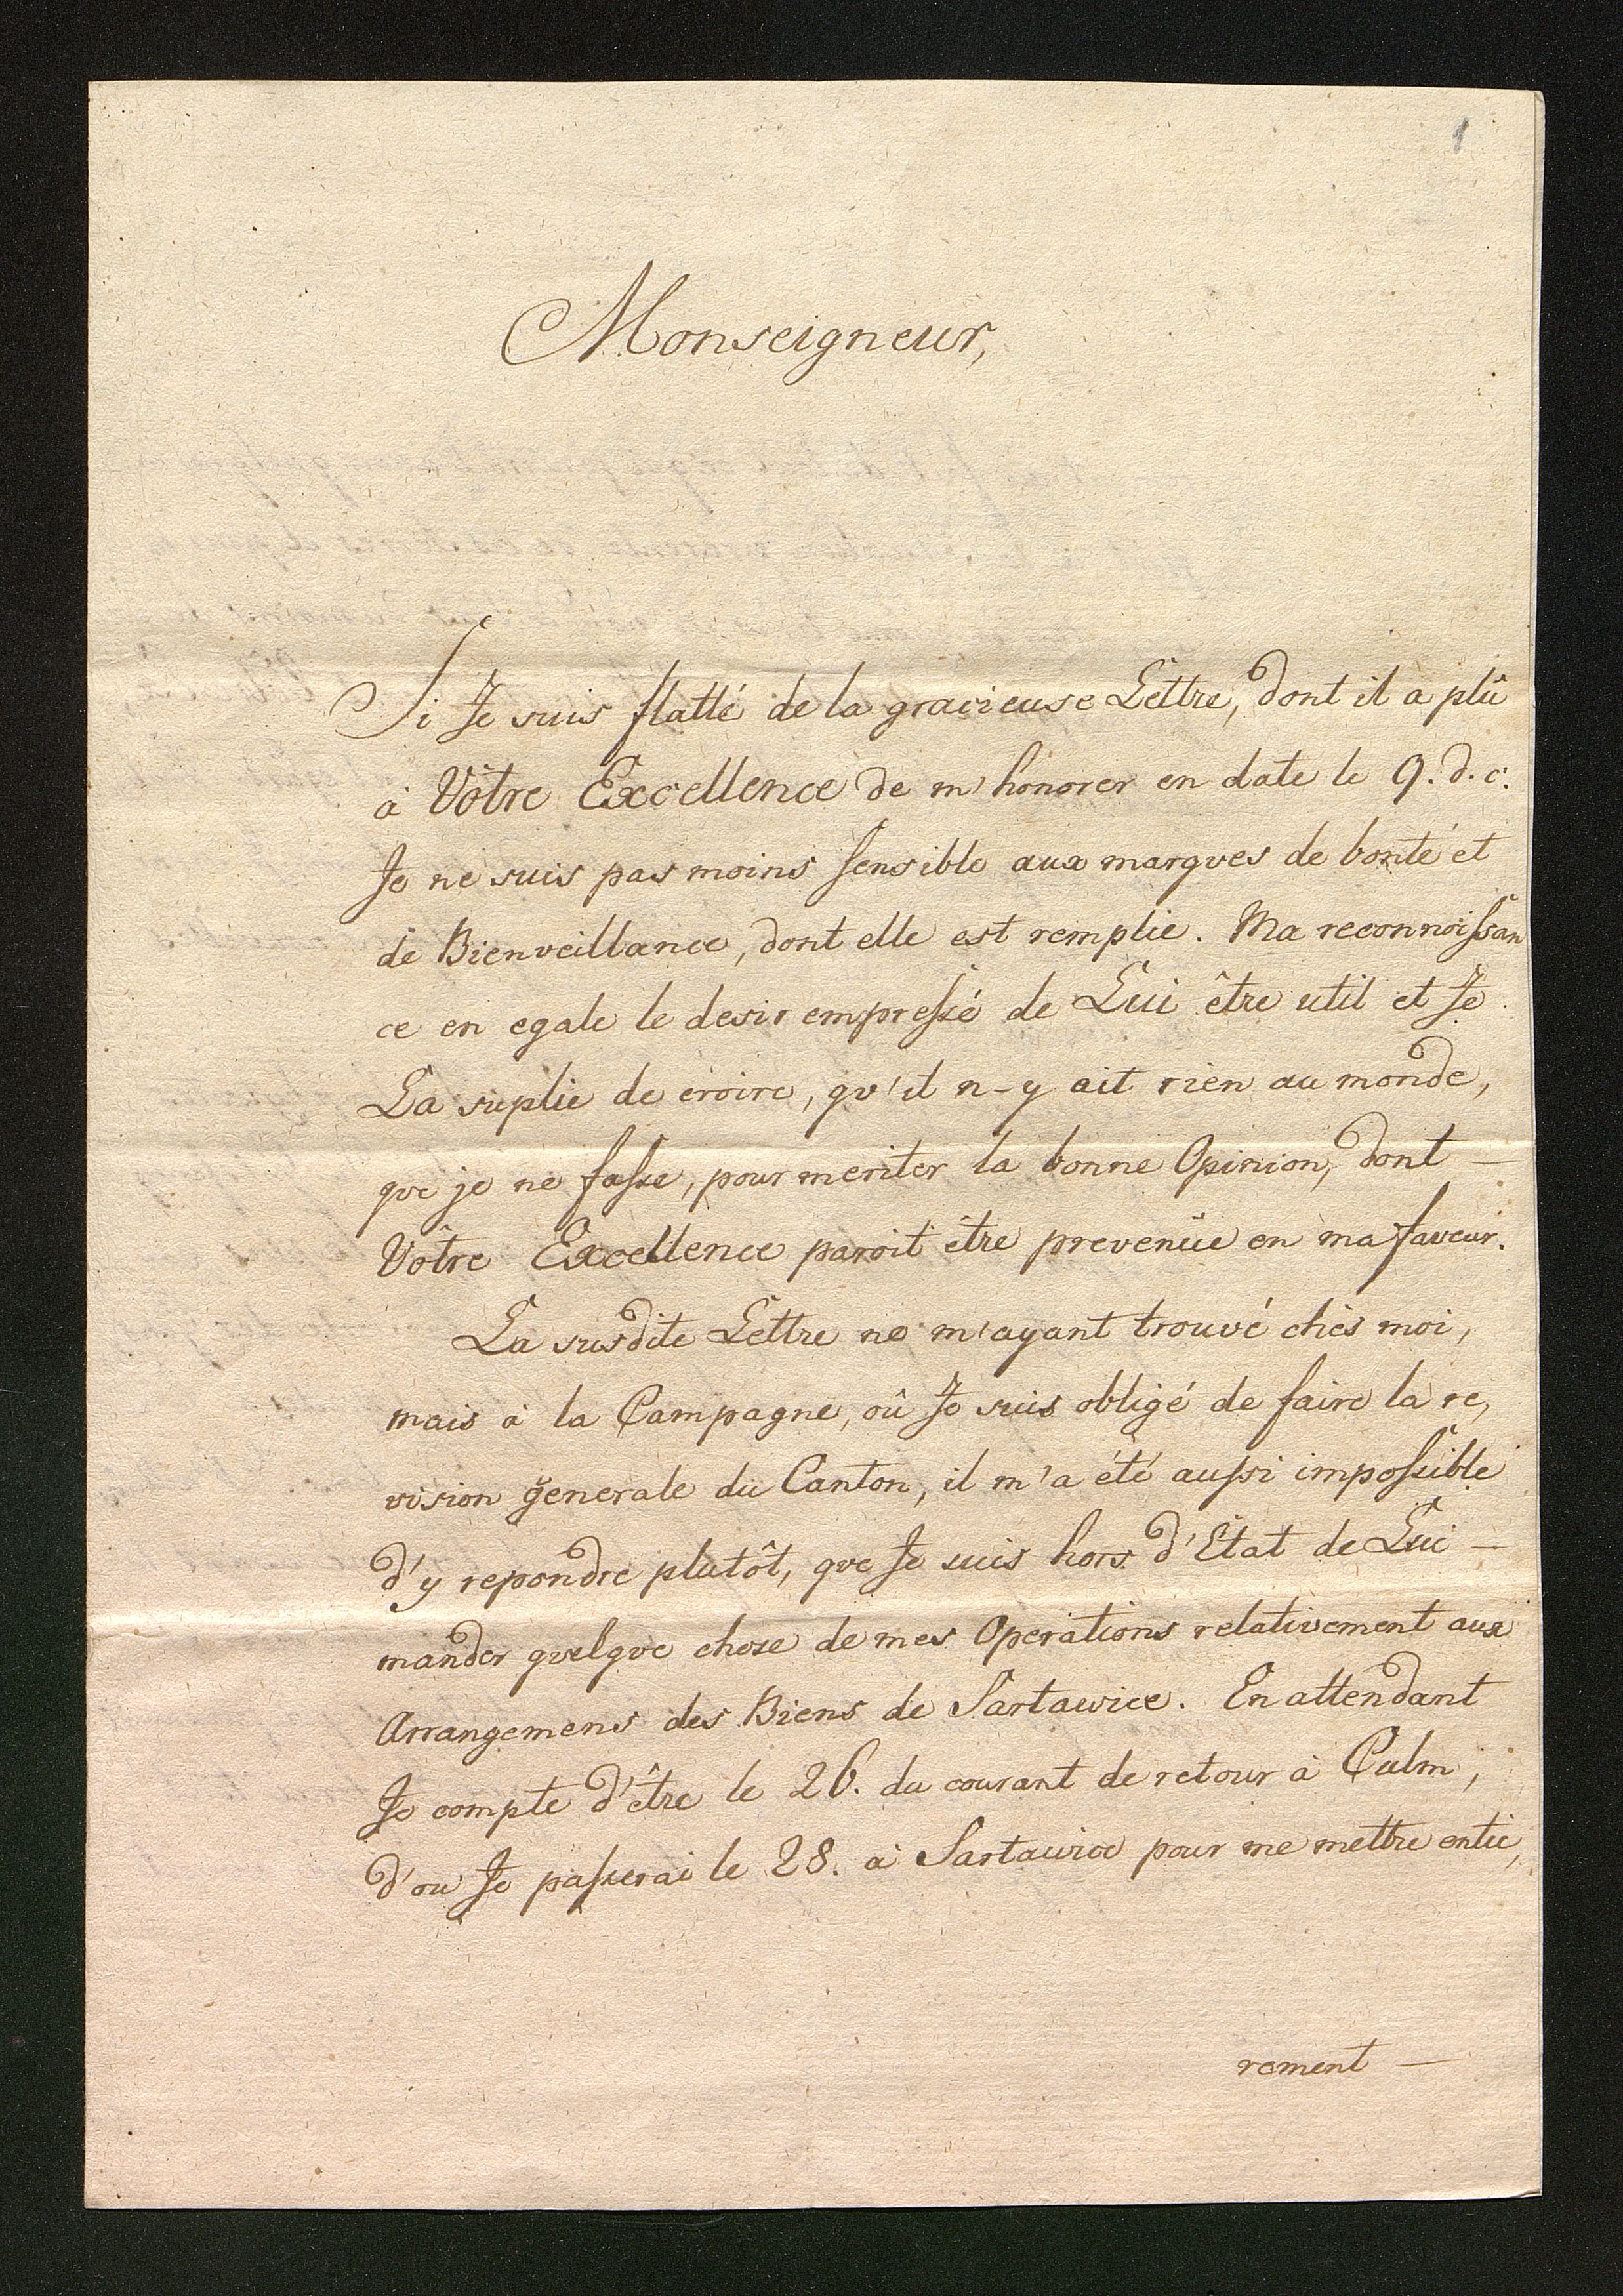 1
Monseigneur,
Si Je suis flatté de la gracieuse Lettre, dont il a plû
à Vôtre Excellence de m'honorer en date le 9. d. c.
Je ne suis pas moins sensible aux marques de bonté et
de Bienveillance, dont elle est remplie. Ma reconnoissan
ce en egale le desir empressé de Lui être util et Je
La suplie de croire, qu'il n-y ait rien au monde,
que je ne fasse, pour meriter la bonne Opinion, dont —
Vôtre Excellence paroit être prevenüe en ma faveur.
La susdite Lettre ne m'ayant trouvé chès moi,
mais à la Campagne, où Je suis obligé de faire la re,
vision generale du Canton, il m'a été aussi impossible
d'y repondre plutôt, que Je suis hors d'Etat de Lui —
mander quelque chose de mes Operations relativement aux
Arrangemens des Biens de Sartawice. En attendant
Je compte d'être le 26. du courant de retour à Culm,
d'ou Je passerai le 28. à Sartawice pour me mettre entie,
rement —